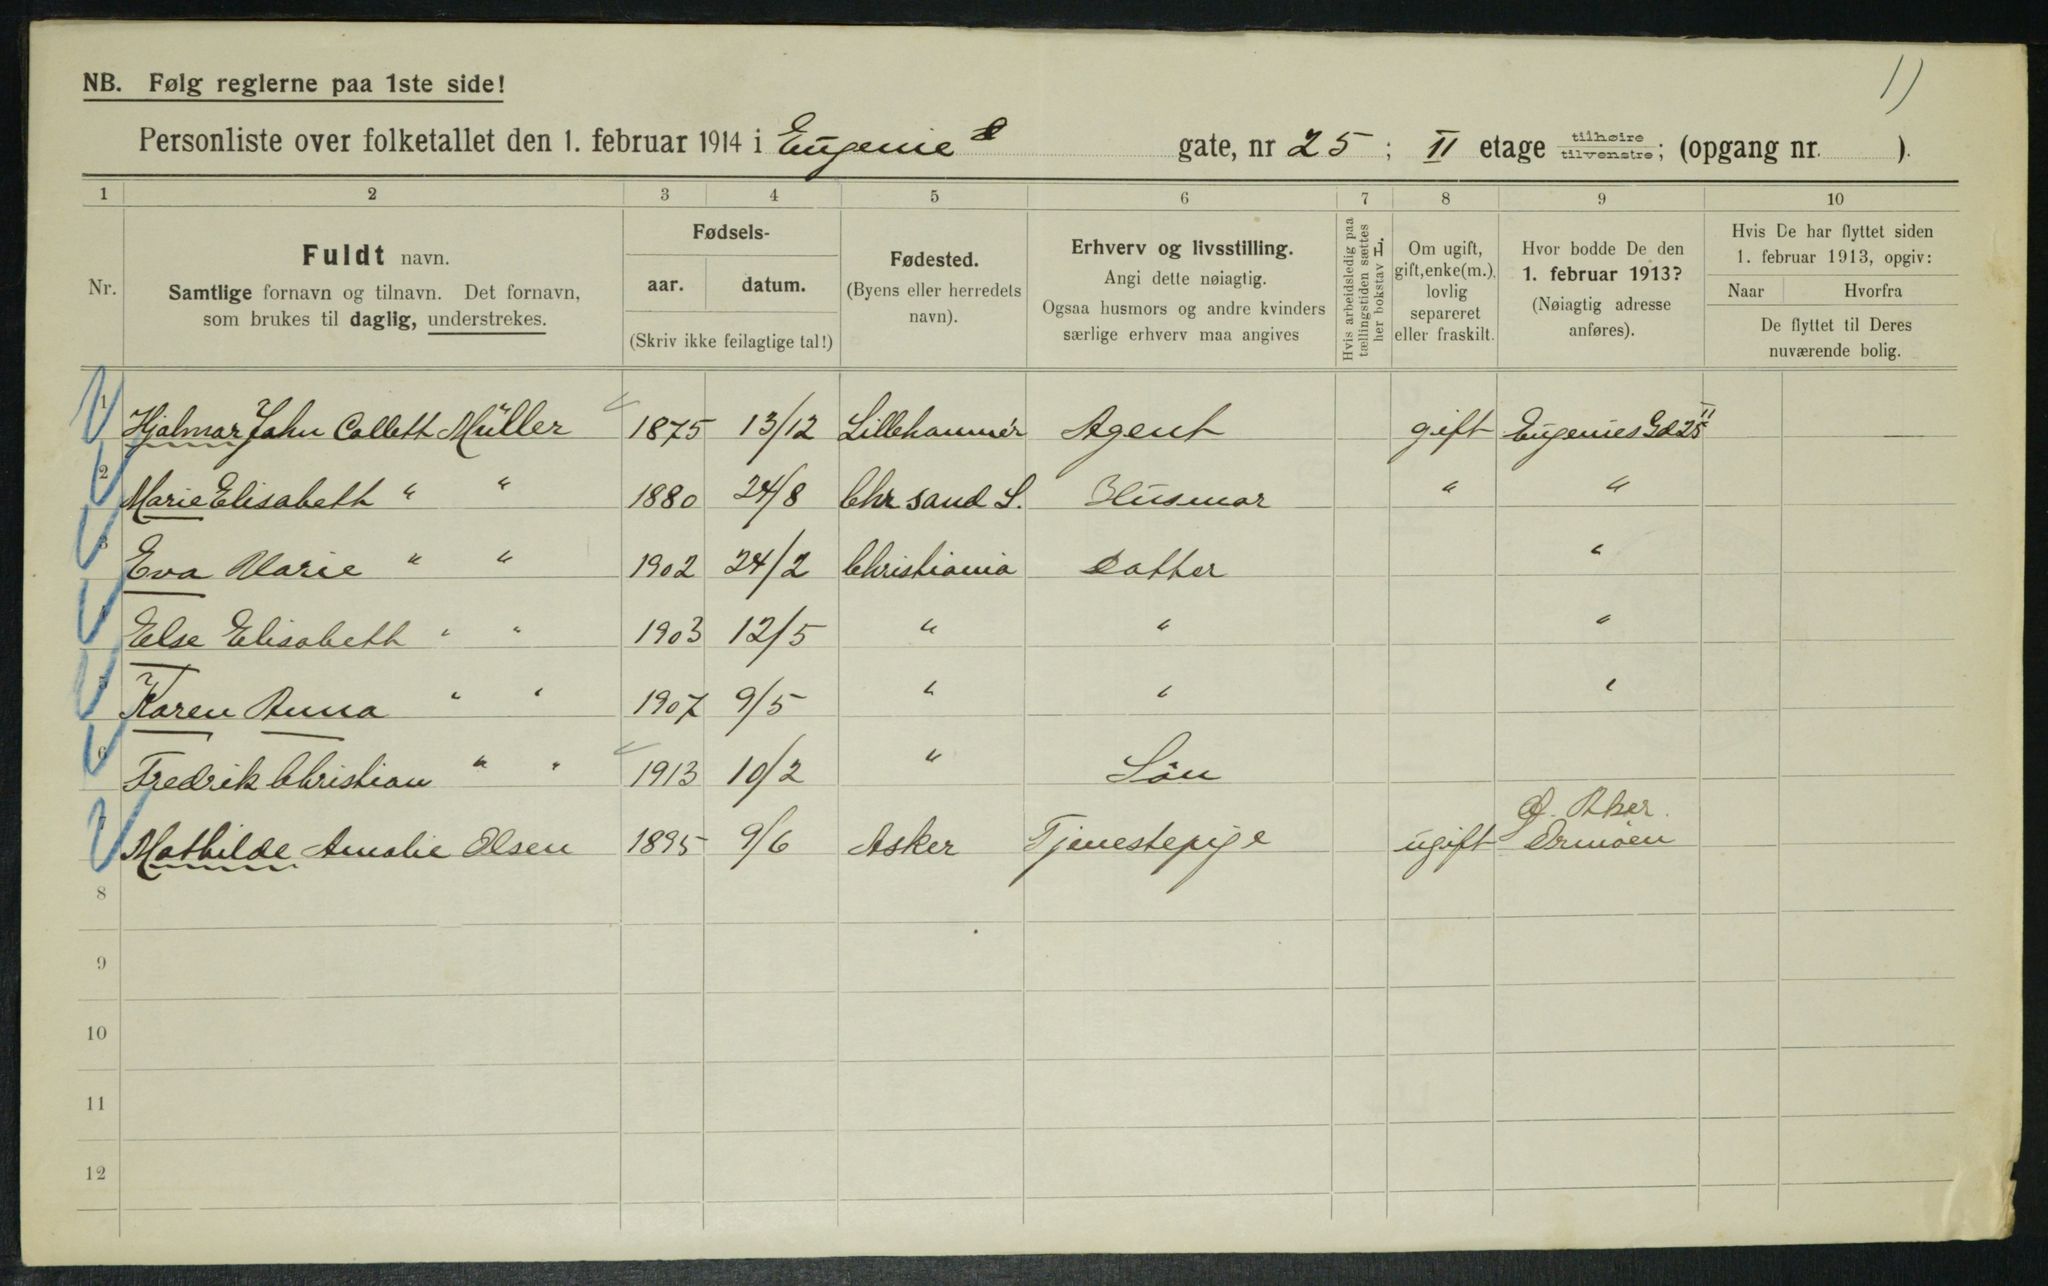 11
NB. Følg reglerne paa 1ste side!
Personliste over folketallet den 1. februar 1914 i Eugenies gate, nr 25; II etage tilhøire tilvenstre; (opgang nr. ).
1 2 3 4 5 6 7 8 9 10
Nr.
Fuldt navn.
Samtlige fornavn og tilnavn. Det fornavn,
som brukes til daglig, understrekes.
Fødsels-
aar. datum.
(Skriv ikke feilagtige tal!)
Fødested.
(Byens eller herredets
navn).
Erhverv og livsstilling.
Angi dette nøiagtig.
Ogsaa husmors og andre kvinders
særlige erhverv maa angives
Hvis arbeidsledig paa
tællingstiden sættes
her bokstav L.
Om ugift,
gift, enke(m.),
lovlig
separeret
eller fraskilt.
Hvor bodde De den
1. februar 1913?
(Nøiagtig adresse
anføres).
Hvis De har flyttet siden
1. februar 1913, opgiv:
Naar Hvorfra
De flyttet til Deres
nuværende bolig.
1 Hjalmar John Collett Müller 1875 13/12 Lillehammer Agent gift Eugenies Gd 25 II
2 Marie Elisabeth " " 1880 24/8 Chrsand S. Husmor " "
3 Eva Marie " " 1902 24/2 Christiania Datter "
4 Else Elisabeth " " 1903 12/5 " " "
5 Karen Anna " " 1907 9/5 " " "
6 Fredrik Christian " " 1913 10/2 " Sön
7 Mathilde Amalie Olsen 1895 9/6 Asker Tjenestepige ugift Ö. Aker. Ormöen
8
9
10
11
12